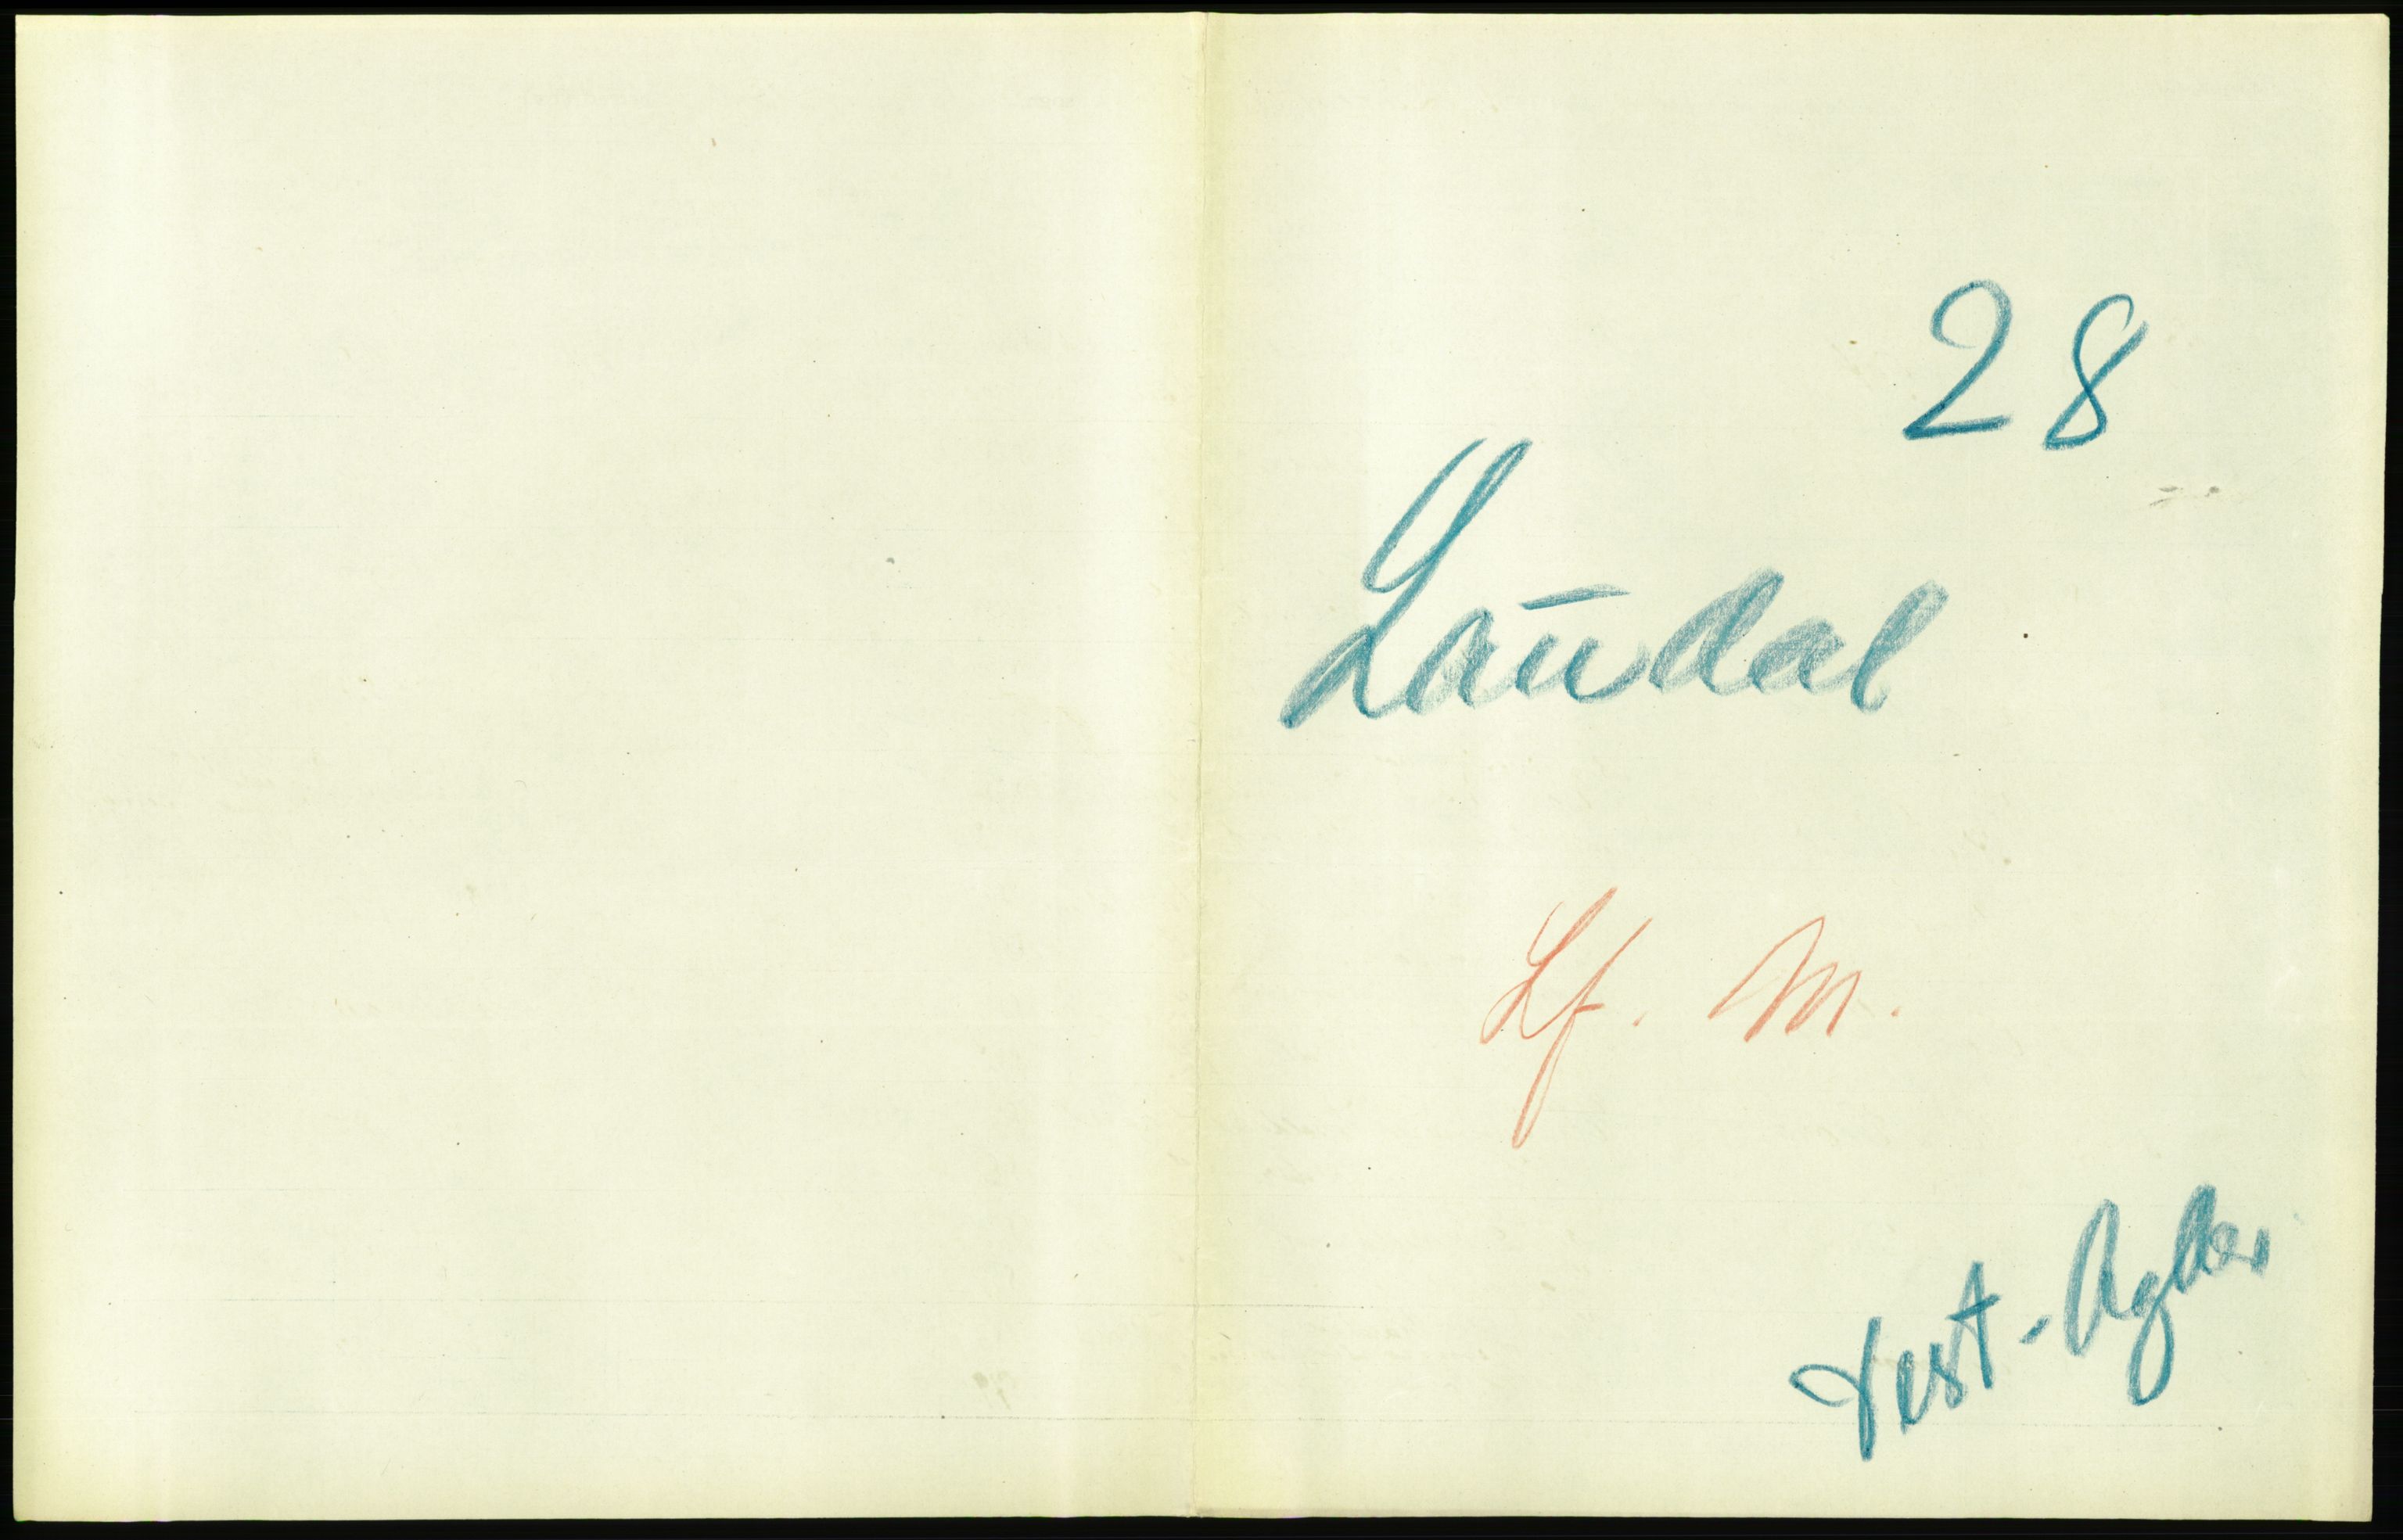 28
Laudal
Lf. M.
Vest-Agder